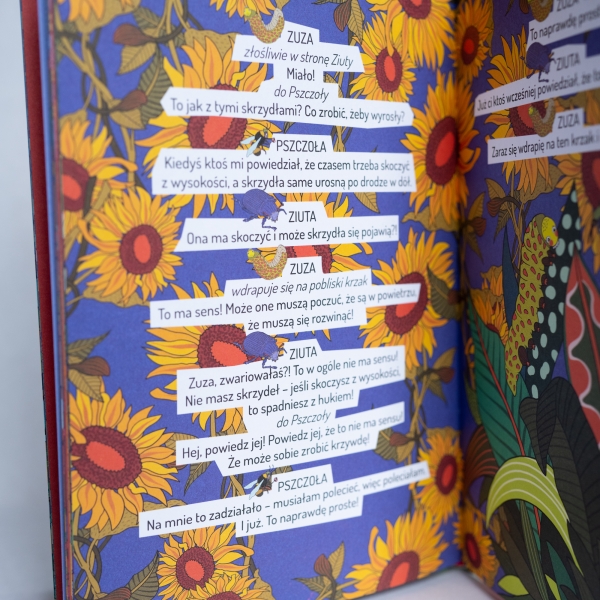 ZUZA
złośliwie w stronę Ziuty
Miało!
do Pszczoły
To jak z tymi skrzydłami? Co zrobić, żeby wyrosły?
PSZCZOŁA
Kiedyś ktoś mi powiedział, że czasem trzeba skoczyć
z wysokości, a skrzydła same urosną po drodze w dół.
ZIUTA
Ona ma skoczyć i może skrzydła się pojawią?!
ZUZA
wdrapuje się na pobliski krzak
To ma sens! Może one muszą poczuć, że są w powietrzu,
że muszą się rozwinąć!
ZIUTA
Zuza, zwariowałaś?! To w ogóle nie ma sensu!
Nie masz skrzydeł – jeśli skoczysz z wysokości,
to spadniesz z hukiem!
do Pszczoły
Hej, powiedz jej! Powiedz jej, że to nie ma sensu!
Że może sobie zrobić krzywdę!
PSZCZOŁA
Na mnie to zadziałało – musiałam polecieć, więc poleciałam.
I już. To naprawdę proste!
ZUZA
To naprawdę proste
ZIUTA
Już ci ktoś wcześniej powiedział, że to
ZUZA
Zaraz się wdrapię na ten krzak i